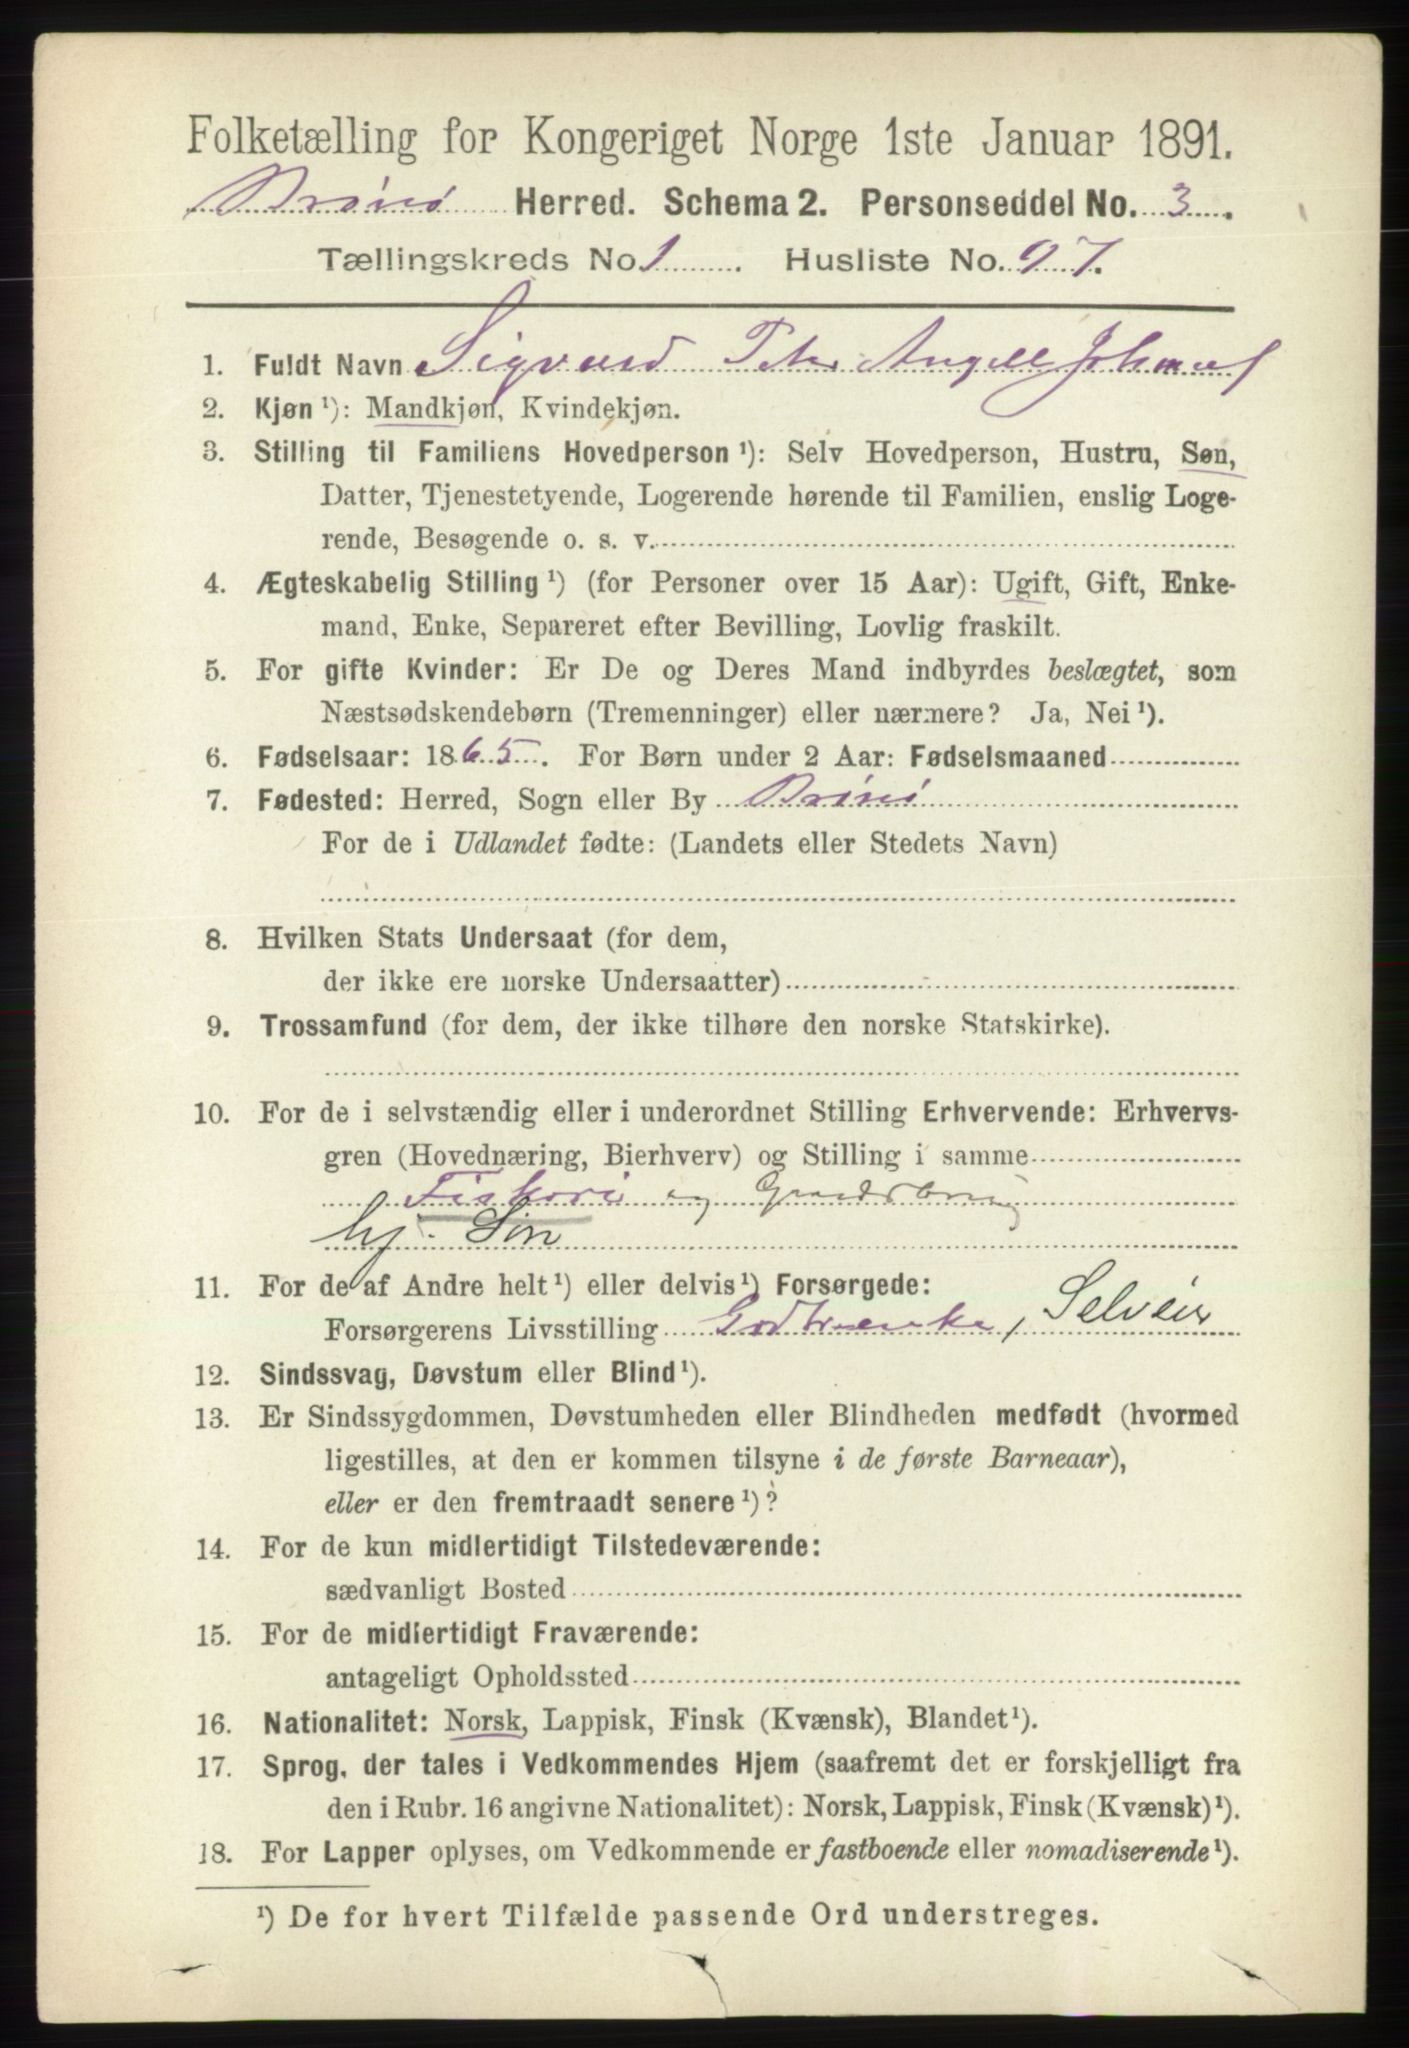 Folketælling for Kongeriget Norge 1ste Januar 1891.
Brønø Herred. Schema 2. Personseddel No. 3.
Tællingskreds No. 1. Husliste No. 97.
1. Fuldt Navn Sigvard Peter Angell Johansen
2. Kjøn ¹): Mandkjøn, Kvindekjøn.
3. Stilling til Familiens Hovedperson ¹): Selv Hovedperson, Hustru, Søn,
Datter, Tjenestetyende, Logerende hørende til Familien, enslig Loge-
rende, Besøgende o. s. v.
4. Ægteskabelig Stilling ¹) (for Personer over 15 Aar): Ugift, Gift, Enke-
mand, Enke, Separeret efter Bevilling, Lovlig fraskilt.
5. For gifte Kvinder: Er De og Deres Mand indbyrdes beslægtet, som
Næstsødskendebørn (Tremenninger) eller nærmere? Ja, Nei ¹).
6. Fødselsaar: 1865. For Børn under 2 Aar: Fødselsmaaned
7. Fødested: Herred, Sogn eller By Brønø
For de i Udlandet fødte: (Landets eller Stedets Navn)
8. Hvilken Stats Undersaat (for dem,
der ikke ere norske Undersaatter)
9. Trossamfund (for dem, der ikke tilhøre den norske Statskirke).
10. For de i selvstændig eller i underordnet Stilling Erhvervende: Erhvervs-
gren (Hovednæring, Bierhverv) og Stilling i samme
Fiskeri og Gaardsbrug
hj. Søn
11. For de af Andre helt ¹) eller delvis ¹) Forsørgede:
Forsørgerens Livsstilling Selveier
12. Sindssvag, Døvstum eller Blind ¹).
13. Er Sindssygdommen, Døvstumheden eller Blindheden medfødt (hvormed
ligestilles, at den er kommen tilsyne i de første Barneaar),
eller er den fremtraadt senere ¹)?
14. For de kun midlertidigt Tilstedeværende:
sædvanligt Bosted
15. For de midlertidigt Fraværende:
antageligt Opholdssted
16. Nationalitet: Norsk, Lappisk, Finsk (Kvænsk), Blandet ¹).
17. Sprog, der tales i Vedkommendes Hjem (saafremt det er forskjelligt fra
den i Rubr. 16 angivne Nationalitet): Norsk, Lappisk, Finsk (Kvænsk) ¹).
18. For Lapper oplyses, om Vedkommende er fastboende eller nomadiserende ¹).
¹) De for hvert Tilfælde passende Ord understreges.